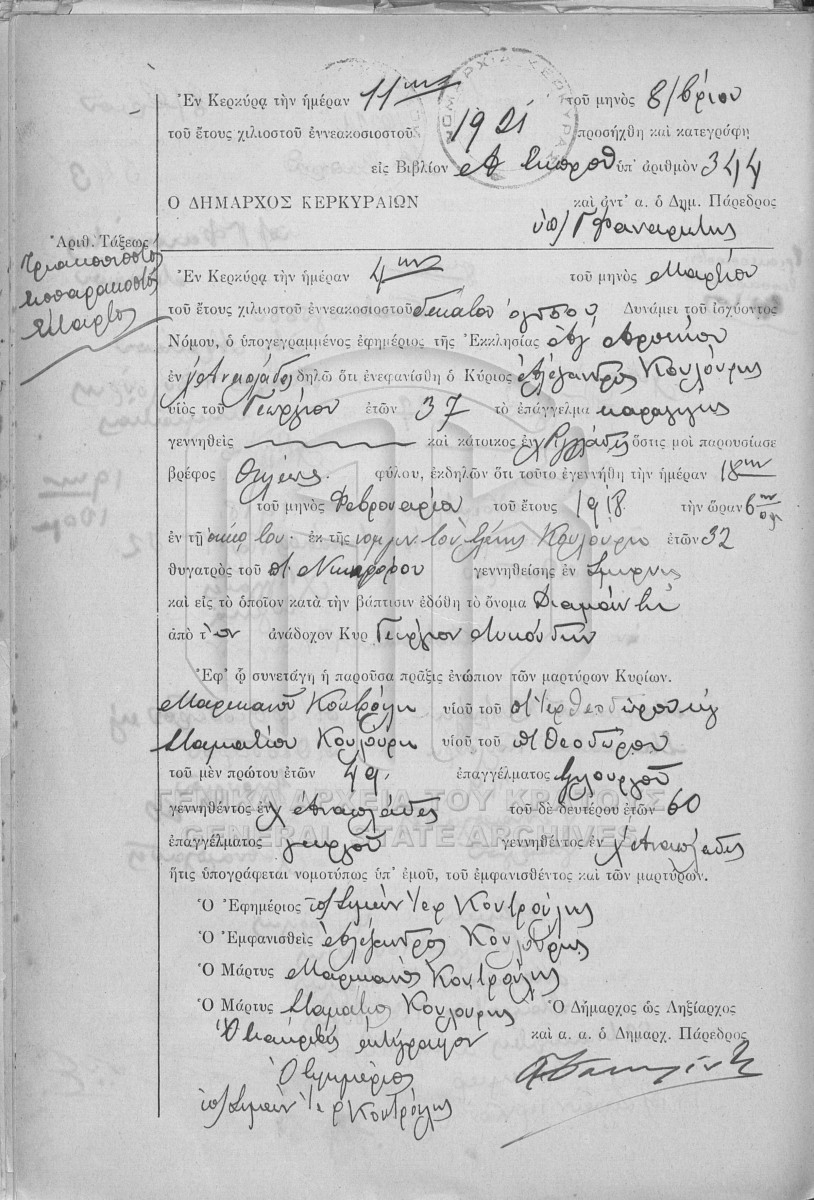 Ἐν Κερκύρᾳ τὴν ἡμέραν 11ην τοῦ μηνὸς 8/βρίου
τοῦ ἔτους χιλιοστοῦ ἐννεακοσιοστοῦ 1921 προσήχθη καὶ κατεγράφη
εἰς Βιβλίον ὑπ' ἀριθμὸν 344
Ο ΔΗΜΑΡΧΟΣ ΚΕΡΚΥΡΑΙΩΝ καὶ ἀντ' α. ὁ Δημ. Πάρεδρος
ΝΟΜΑΡΧΙΑ ΚΕΡΚΥΡΑΣ
Ἀριθ. Τάξεως
Τριακοσιοστὸς
τεσσαρακοστὸς
τέταρτος
Ἐν Κερκύρᾳ τὴν ἡμέραν 4ην τοῦ μηνὸς Μαρτίου
τοῦ ἔτους χιλιοστοῦ ἐννεακοσιοστοῦ δεκάτου ὀγδόου Δυνάμει τοῦ ἰσχύοντος
Νόμου, ὁ ὑπογεγραμμένος ἐφημέριος τῆς Ἐκκλησίας Ἁγ
ἐν δηλῶ ὅτι ἐνεφανίσθη ὁ Κύριος Ἀλέξανδρος Κουλούρης
υἱὸς τοῦ Γεωργίου ἐτῶν 37 τὸ ἐπάγγελμα
γεννηθεὶς καὶ κάτοικος ἐν ὅστις μοὶ παρουσίασε
βρέφος θήλεος φύλου, ἐκδηλῶν ὅτι τοῦτο ἐγεννήθη τὴν ἡμέραν 18ην
τοῦ μηνὸς Φεβρουαρίου τοῦ ἔτους 1918 τὴν ὥραν 6ην
ἐν τῇ οἰκίᾳ του ἐκ τῆς νομίμου του Κουλούρη ἐτῶν 32
θυγατρὸς τοῦ Νικηφόρου γεννηθείσης ἐν
καὶ εἰς τὸ ὁποῖον κατὰ τὴν βάπτισιν ἐδόθη τὸ ὄνομα
ἀπὸ τὸν ἀνάδοχον Κυρ Γεώργιον
Ἐφ' ᾧ συνετάγη ἡ παροῦσα πρᾶξις ἐνώπιον τῶν μαρτύρων Κυρίων.
Μαρκιανοῦ Κοντρούλη υἱοῦ τοῦ
Σταματίου Κουλούρη υἱοῦ τοῦ Θεοδώρου
τοῦ μὲν πρώτου ἐτῶν 49 ἐπαγγέλματος ξυλουργοῦ
ΓΕΝΙΚΑ ΑΡΧΕΙΑ ΤΟΥ ΚΡΑΤΟΥΣ
γεννηθέντος ἐν χ Ἀναπλάδες τοῦ δὲ δευτέρου ἐτῶν 60
GENERAL STATE ARCHIVES
ἐπαγγέλματος γεωργοῦ γεννηθέντος ἐν χ Ἀναπλάδες
ἥτις ὑπογράφεται νομοτύπως ὑπ' ἐμοῦ, τοῦ ἐμφανισθέντος καὶ τῶν μαρτύρων.
Ὁ Ἐφημέριος Κοντρούλης
Ὁ Ἐμφανισθεὶς Ἀλέξανδρος Κουλούρης
Ὁ Μάρτυς Μαρκιανὸς Κοντρούλης
Ὁ Μάρτυς Σταμάτιος Κουλούρης Ὁ Δήμαρχος ὡς Ληξίαρχος
ἀντίγραφον καὶ α. α. ὁ Δημαρχ. Πάρεδρος
Ὁ Ἐφημέριος
Κοντρούλης